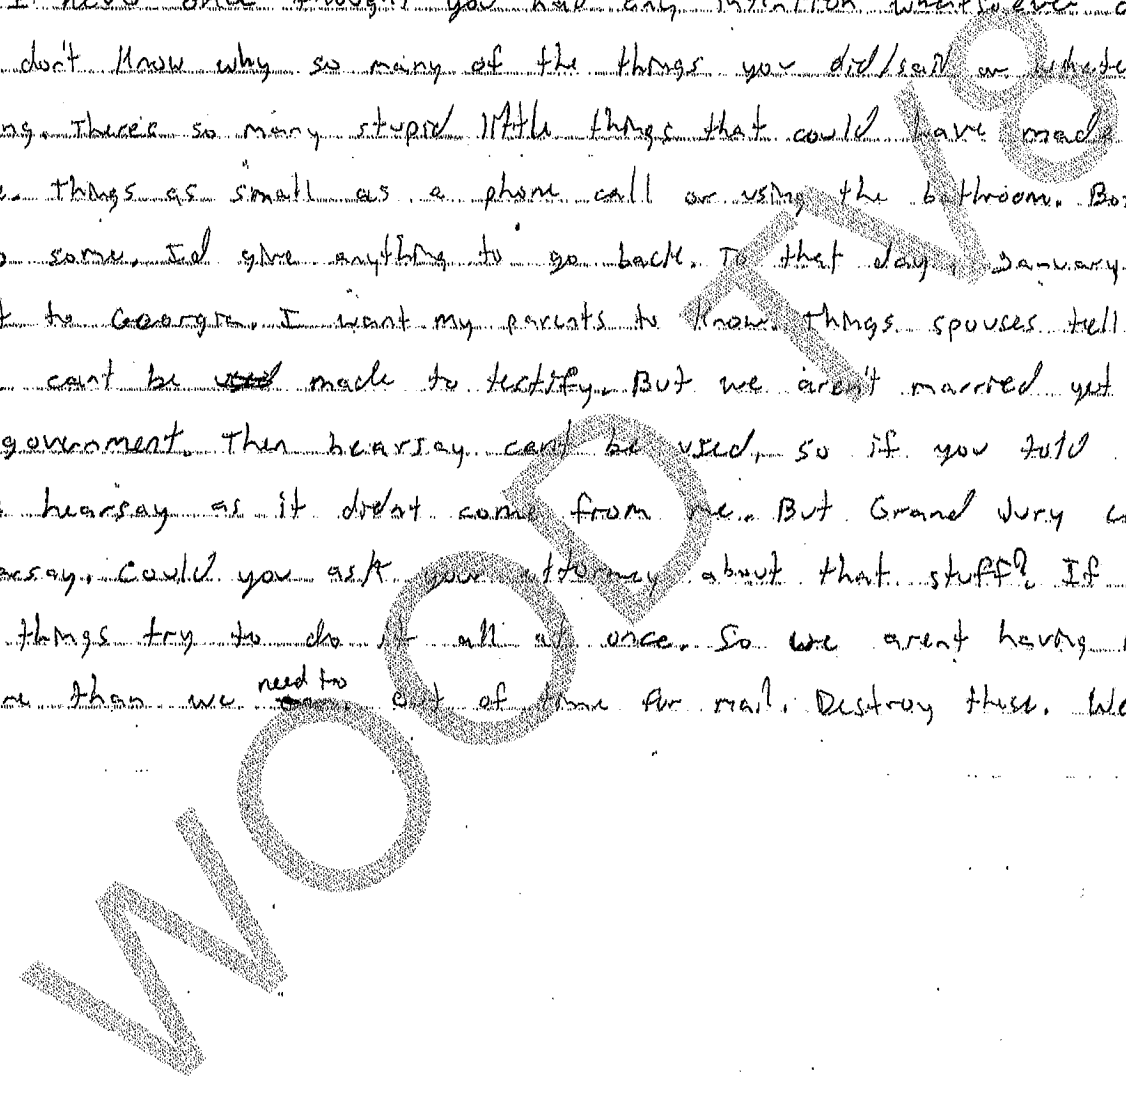 I never once thought you had any intention whatsoever
don't know why so many of the things you did/said or
ng. There's so many stupid little things that could have made
Things as small as a phone call or using the bathroom.
some. I'd give anything to go back. To that day, January
to Georgia. I want my parents to know. Things spouses tell
cant be used made to testify. But we aren't married yet
government. Then hearsay cant be used, so if you told
hearsay as it didnt come from me. But Grand Jury
arsay. Could you ask your attorney about that stuff? If
things try to do it all at once. So we arent having
than we need to out of time for mail. Destroy these. We
WOOD TV8